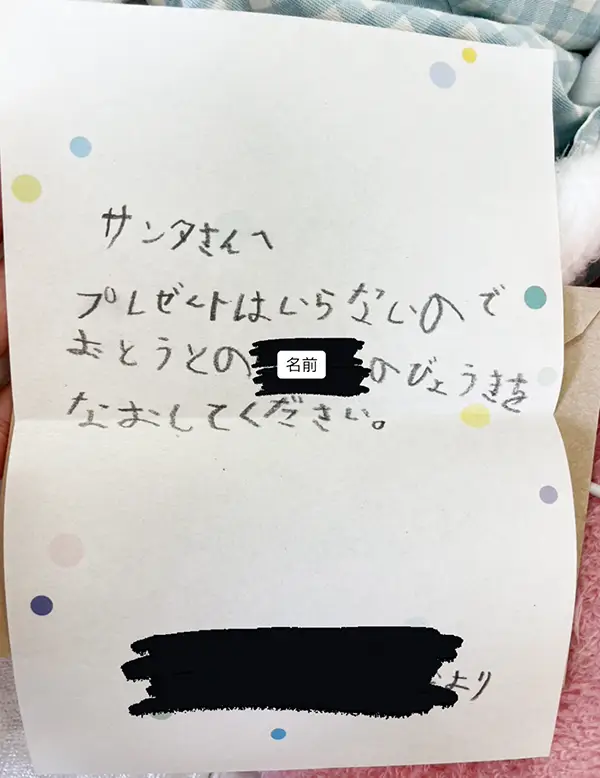 サンタさんへ
プレゼートはいらないので
おとうとの 名前 のびょうきを
なおしてください。
より